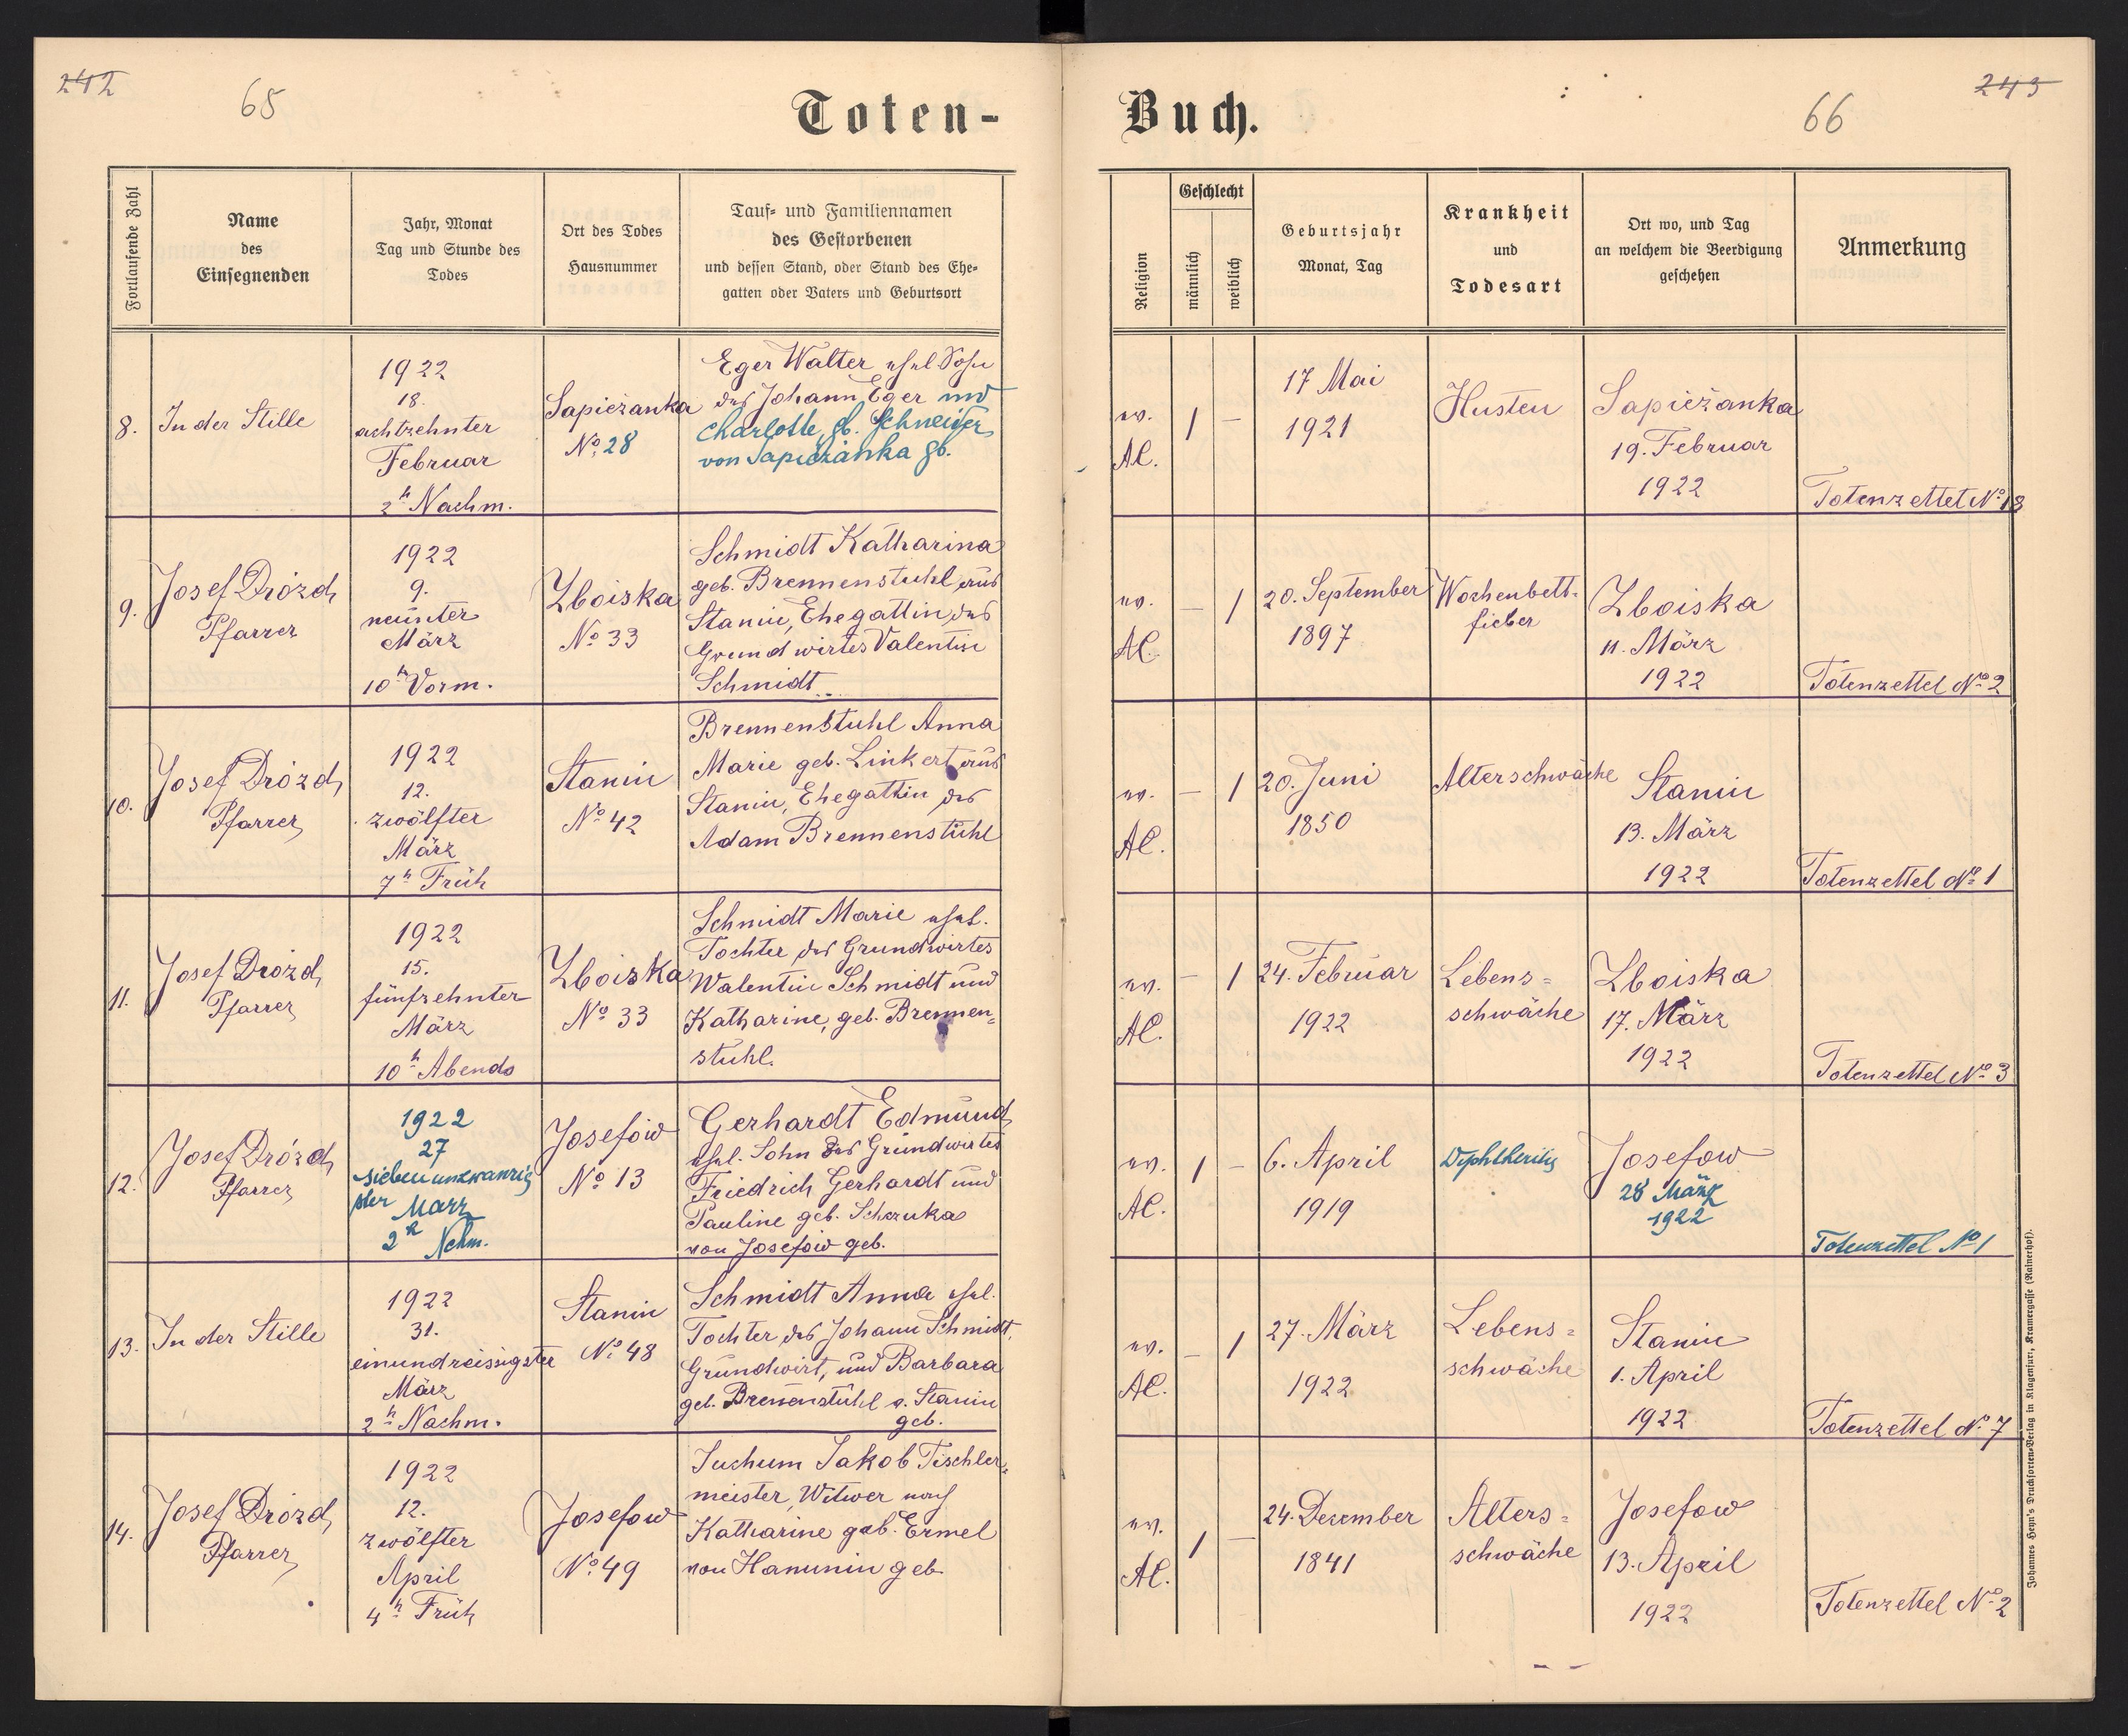 242
65
Toten-
Fortlaufende Zahl
Name
des
Einsegnenden
Jahr, Monat
Tag und Stunde des
Todes
Ort des Todes
Hausnummer
Tauf- und Familiennamen
des Gestorbenen
und dessen Stand, oder Stand des Ehe-
gatten oder Vaters und Geburtsort
8.
In der Stille
1922
18.
achtzehnter
Februar
2h Nachm.
Sapieżanka
No. 28
Eger Walter ehel Sohn
des Johann Eger und
Charlotte, gb. Schneider
von Sapieżanka gb.
9.
Josef Drózd
Pfarrer
1922
9.
neunter
März
10h Vorm.
Zboiska
No 33
Schmidt Katharina
geb. Brennenstuhl aus
Stanin, Ehegattin des
Grundwirtes Valentin
Schmidt
10.
Josef Drózd
Pfarrer
1922
12.
zwölfter
März
7h Früh
Stanin
No 42
Brennenstuhl Anna
Marie geb. Linkert aus
Stanin, Ehegattin des
Adam Brennenstuhl
11.
Josef Drózd
Pfarrer
1922
15.
fünfzehnter
März
10h Abends
Zboiska
No 33
Schmidt Marie ehel.
Tochter des Grundwirtes
Walentin Schmidt und
Katharine, geb. Brennen=
stuhl.
12.
Josef Drózd
Pfarrer
1922
27
siebenundzwanzig
ster März
2h Nchm.
Josefów
No 13
Gerhardt Edmund
ehel. Sohn des Grundwirtes
Friedrich Gerhardt und
Pauline geb.
von Josefów geb.
13.
In der Stille
1922
31.
einundreissigster
März
2h Nachm.
Stanin
No. 48
Schmidt Anna ehel.
Tochter des Johann Schmidt,
Grundwirt, und Barbara
geb. Brennenstuhl v. Stanin
geb.
14.
Josef Drózd
Pfarrer
1922
12.
zwölfter
April
4h Früh
Josefow
No. 49
Juchum Jakob Tischler=
meister, Witwer nach
Katharine geb. Ermel
von Hanunin geb.
243
66
Buch.
Religion
Geschlecht
männlich
weiblich
Geburtsjahr
Monat, Tag
Krankheit
und
Todesart
Ort wo, und Tag
an welchem die Beerdigung
geschehen
Anmerkung
ev.
AC.
1
—
17 Mai
1921
Husten
Sapieżanka
19. Februar
1922
Totenzettel No 18
ev.
AC.
—
1
20. September
1897
Wochenbett-
fieber
Zboiska
11. März
1922
Totenzettel No 2
ev.
AC.
—
1
20. Juni
1850
Alterschwäche
Stanin
13. März
1922
Totenzettel No 1
ev.
AC.
—
1
24. Februar
1922
Lebens=
schwäche
Zboiska
17. März
1922
Totenzettel No 3
ev.
AC.
1
—
6. April
1919
Diphtheritis
Josefow
28 März
1922
Totenzettel No 1
ev.
AC.
—
1
27. März
1922
Lebens=
schwäche
Stanin
1. April
1922
Totenzettel No 7
ev.
AC.
1
—
24. Dezember
1841
Alters=
schwäche
Josefow
13. April
1922
Totenzettel No 2
Johannes Heyn's Drucksorten-Verlag in Klagenfurt, Kramergasse (Rainerhof).